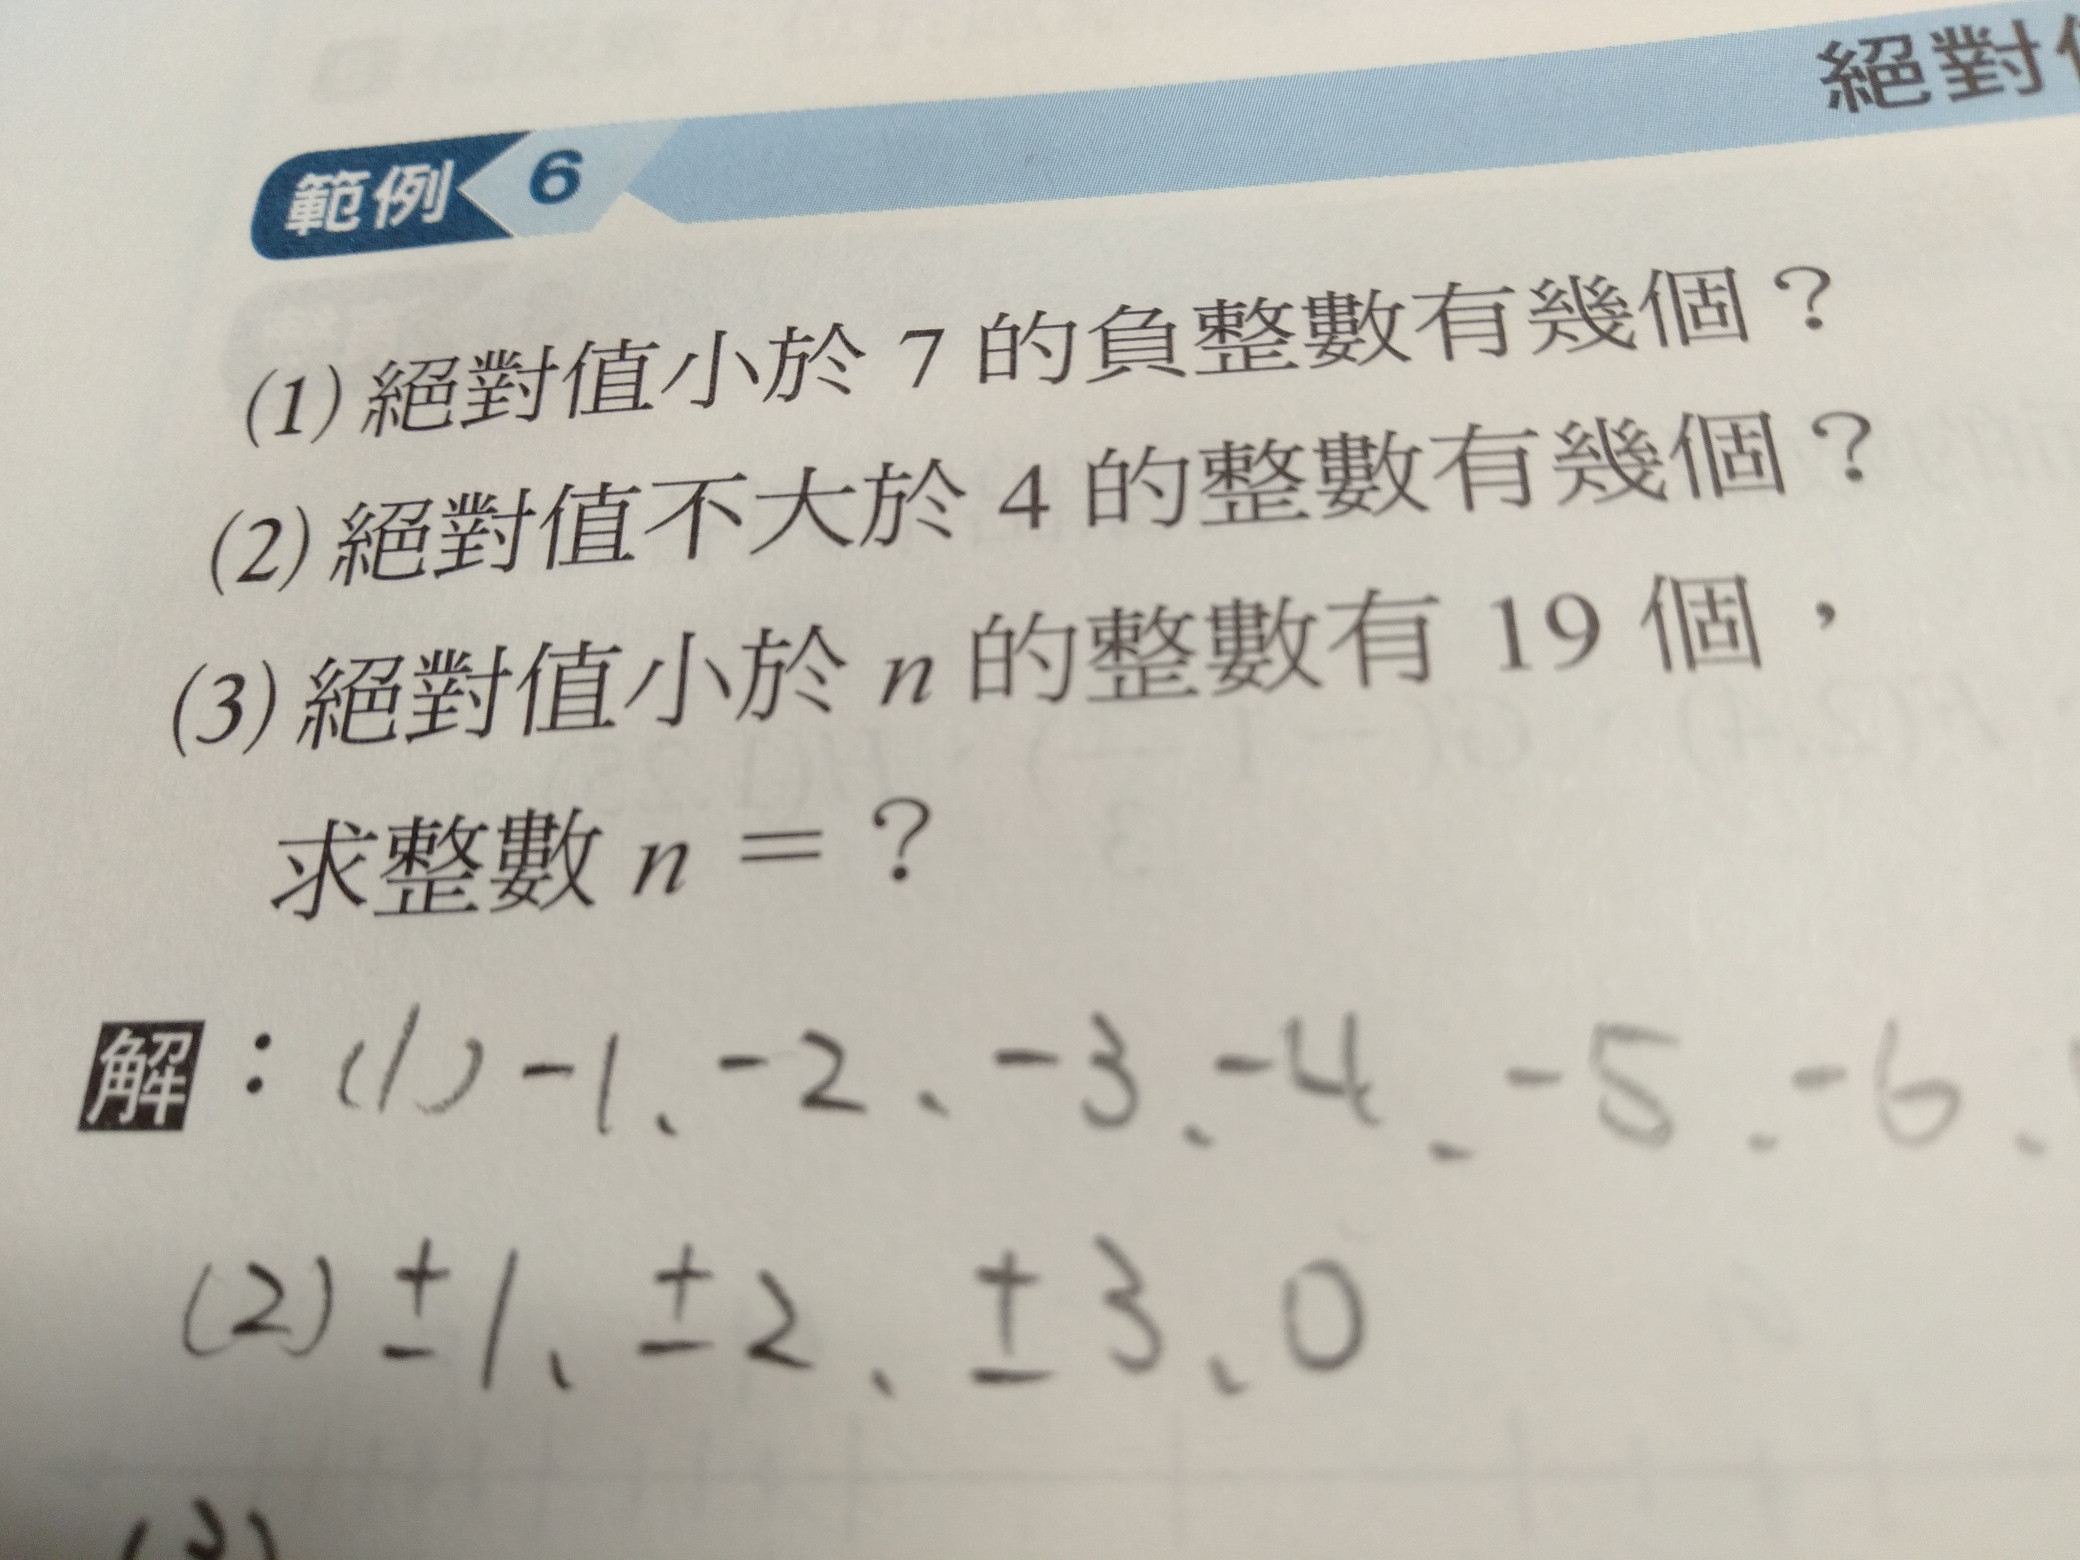 絕對
範例 6
(1) 絕對值小於 7 的負整數有幾個？
(2) 絕對值不大於 4 的整數有幾個？
(3) 絕對值小於 n 的整數有 19 個，
求整數 n = ？
解：(1) -1、-2、-3、-4、-5、-6、
(2) ±1、±2、±3、0
(3)